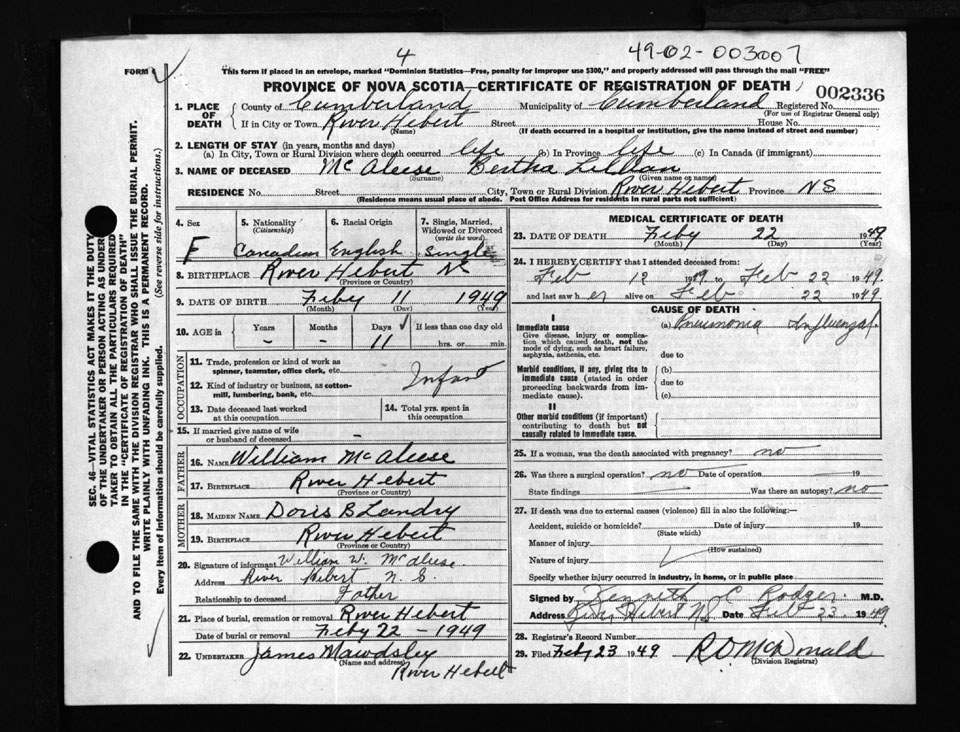 4
49-02-003007
FORM 6
This form if placed in an envelope, marked "Dominion Statistics—Free, penalty for improper use $300," and properly addressed will pass through the mail "FREE"
PROVINCE OF NOVA SCOTIA—CERTIFICATE OF REGISTRATION OF DEATH
002336
1. PLACE OF DEATH County of Cumberland Municipality of Cumberland Registered No.
(For use of Registrar General only)
If in City or Town River Hebert Street House No.
(Name) (If death occurred in a hospital or institution, give the name instead of street and number)
2. LENGTH OF STAY (in years, months and days)
(a) In City, Town or Rural Division where death occurred life (b) In Province life (c) In Canada (if immigrant)
3. NAME OF DECEASED McAleese Bertha Lillian
(Surname) (Given name or names)
RESIDENCE No. Street City, Town or Rural Division River Hebert Province NS
(Residence means usual place of abode. Post Office Address for residents in rural parts not sufficient)
4. Sex F
5. Nationality (Citizenship) Canadian
6. Racial Origin English
7. Single, Married, Widowed or Divorced (write the word) Single
8. BIRTHPLACE River Hebert NS
(Province or Country)
9. DATE OF BIRTH Feby 11 1949
(Month) (Day) (Year)
10. AGE in Years Months Days If less than one day old
- - 11 hrs. or min.
OCCUPATION
11. Trade, profession or kind of work as spinner, teamster, office clerk, etc.
Infant
12. Kind of industry or business, as cotton-mill, lumbering, bank, etc.
13. Date deceased last worked at this occupation
14. Total yrs. spent in this occupation
15. If married give name of wife or husband of deceased -
FATHER
16. NAME William McAleese
17. BIRTHPLACE River Hebert
(Province or Country)
MOTHER
18. MAIDEN NAME Doris B Landry
19. BIRTHPLACE River Hebert
(Province or Country)
20. Signature of informant William W. McAleese
Address River Hebert N. S.
Relationship to deceased Father
21. Place of burial, cremation or removal River Hebert
Date of burial or removal Feby 22 - 1949
22. UNDERTAKER James Mawdsley
(Name and address) River Hebert
MEDICAL CERTIFICATE OF DEATH
23. DATE OF DEATH Feby 22 1949
(Month) (Day) (Year)
24. I HEREBY CERTIFY that I attended deceased from:
Feb 12 1949 to Feb 22 1949
and last saw her alive on Feb 22 1949
CAUSE OF DEATH
I
Immediate cause
Give disease, injury or complication which caused death, not the mode of dying, such as heart failure, asphyxia, asthenia, etc.
(a) Pneumonia Influenzal
due to
Morbid conditions, if any, giving rise to immediate cause (stated in order proceeding backwards from immediate cause).
(b)
due to
(c)
II
Other morbid conditions (if important) contributing to death but not causally related to immediate cause.
25. If a woman, was the death associated with pregnancy? no
26. Was there a surgical operation? no Date of operation 19
State findings Was there an autopsy? no
27. If death was due to external causes (violence) fill in also the following:
Accident, suicide or homicide? Date of injury 19
(State which)
Manner of injury
(How sustained)
Nature of injury
Specify whether injury occurred in industry, in home, or in public place
Signed by Kenneth C Rodger M.D.
Address River Hebert NS Date Feb 23 1949
28. Registrar's Record Number
29. Filed Feby 23 1949 R.D. McDonald
(Division Registrar)
SEC. 46—VITAL STATISTICS ACT MAKES IT THE DUTY
OF THE UNDERTAKER OR PERSON ACTING AS UNDER-
TAKER TO OBTAIN ALL THE PARTICULARS REQUIRED
IN THE "CERTIFICATE OF REGISTRATION OF DEATH"
AND TO FILE THE SAME WITH THE DIVISION REGISTRAR WHO SHALL ISSUE THE BURIAL PERMIT.
WRITE PLAINLY WITH UNFADING INK. THIS IS A PERMANENT RECORD.
Every item of information should be carefully supplied. (See reverse side for instructions.)